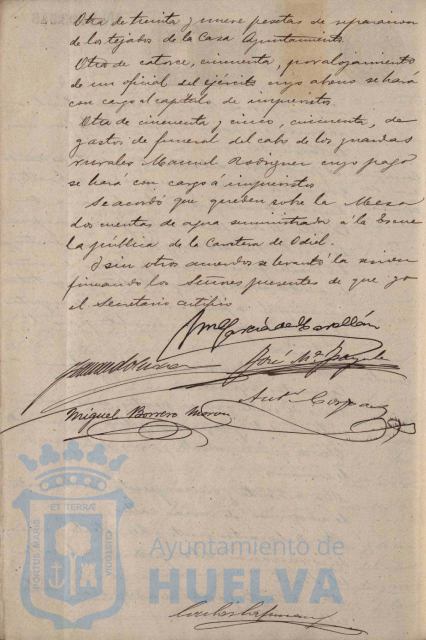 Otro de treinta y nueve pesetas de reparacion
de los tejados de la Casa Ayuntamiento.
Otro de catorce, cincuenta, por alojamiento
de un oficial del ejército cuyo abono se hará
con cargo al capítulo de imprevistos.
Otra de cincuenta y cinco, cincuenta, de
gastos de funeral del cabo de los guardas
rurales Manuel Rodriguez cuyo pago
se hará con cargo á imprevistos
Se acordó que queden sobre la Mesa
dos cuentas de agua suministrada á la Escue
la pública de la Carretera de Odiel.
I sin otros acuerdos se levantó la
firmando los Señores presentes de que yo
el Secretario certifico
García de
José Mª
Miguel Borrero Moron
Antº
ET TERRÆ
PORTUS MARIS
CUSTODIA
Ayuntamiento de
HUELVA